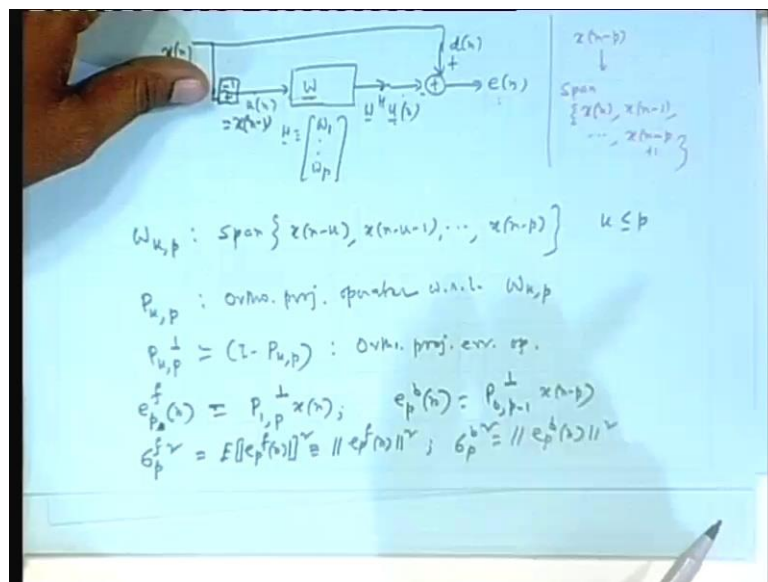 x(n)
d(n)
+
z⁻¹
W
+
e(n)
u(n)
= x(n-1)
W^H u(n)
W = [W₁ ⋮ W_p]
x(n-p)
↓
Span
{x(n), x(n-1),
..., x(n-p
+1)}
W_{k,p} : Span { x(n-k), x(n-k-1), ..., x(n-p) } k ≤ p
P_{k,p} : Ortho. proj. operator w.r.t. W_{k,p}
P_{k,p}^⊥ = (I - P_{k,p}) : Ortho. proj. err. op.
e_p^f(n) = P_{1,p}^⊥ x(n); e_p^b(n) = P_{0,p-1}^⊥ x(n-p)
σ_p^{f 2} = E[|e_p^f(n)|]² = ||e_p^f(n)||²; σ_p^{b 2} = ||e_p^b(n)||²